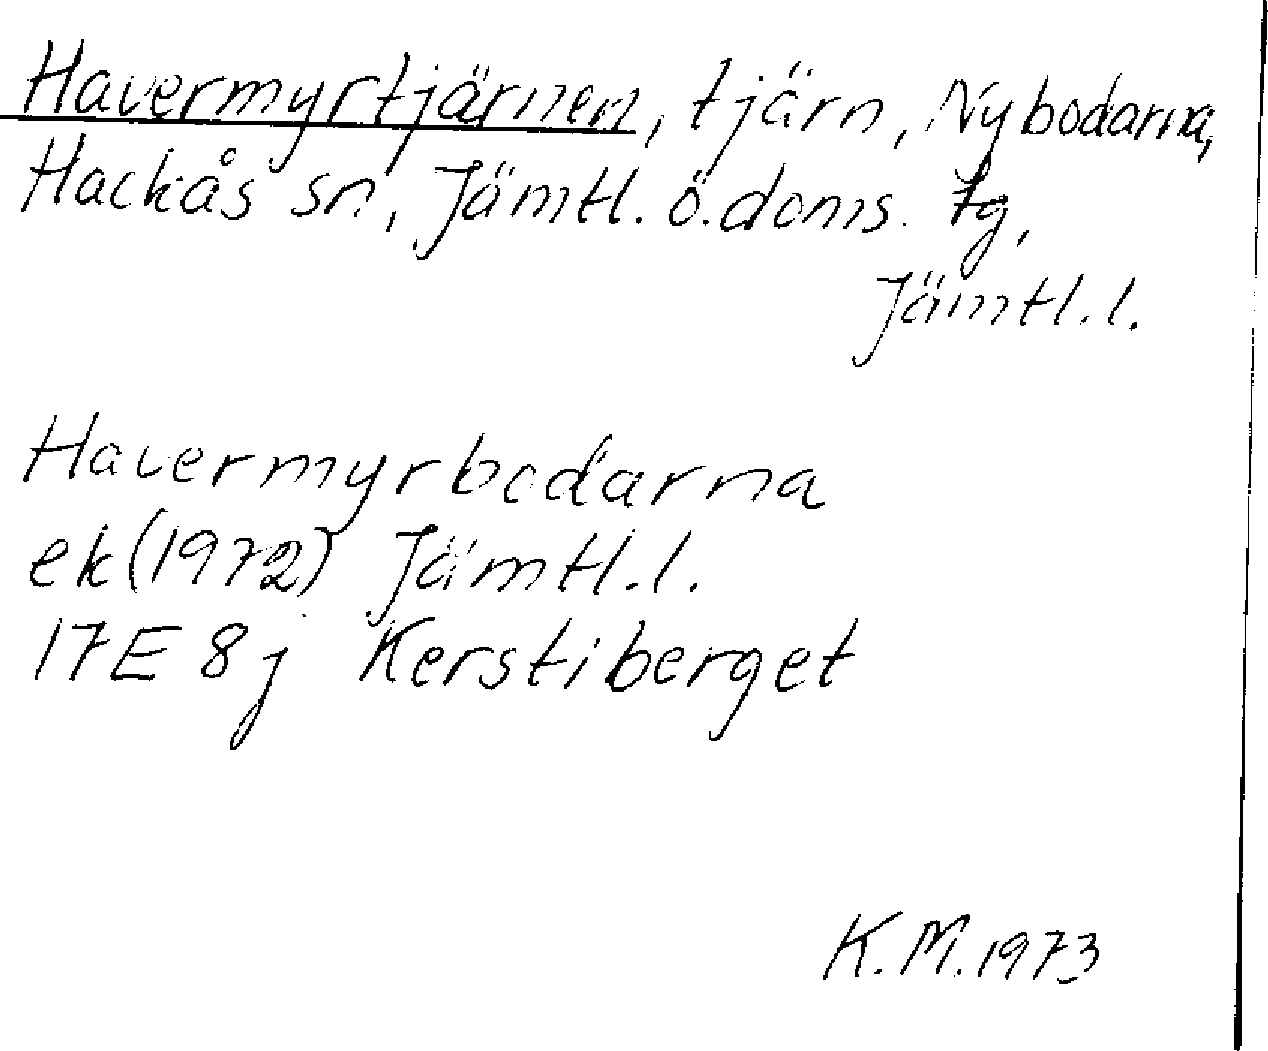 Havermyrtjärnen, tjärn, Nybodarna,
Hackås sn, Jämtl. ö. doms. tg,
Jämtl. l.
Havermyrbodarna
ek (1972) Jämtl. l.
17E 8j Kerstiberget
K. M. 1973